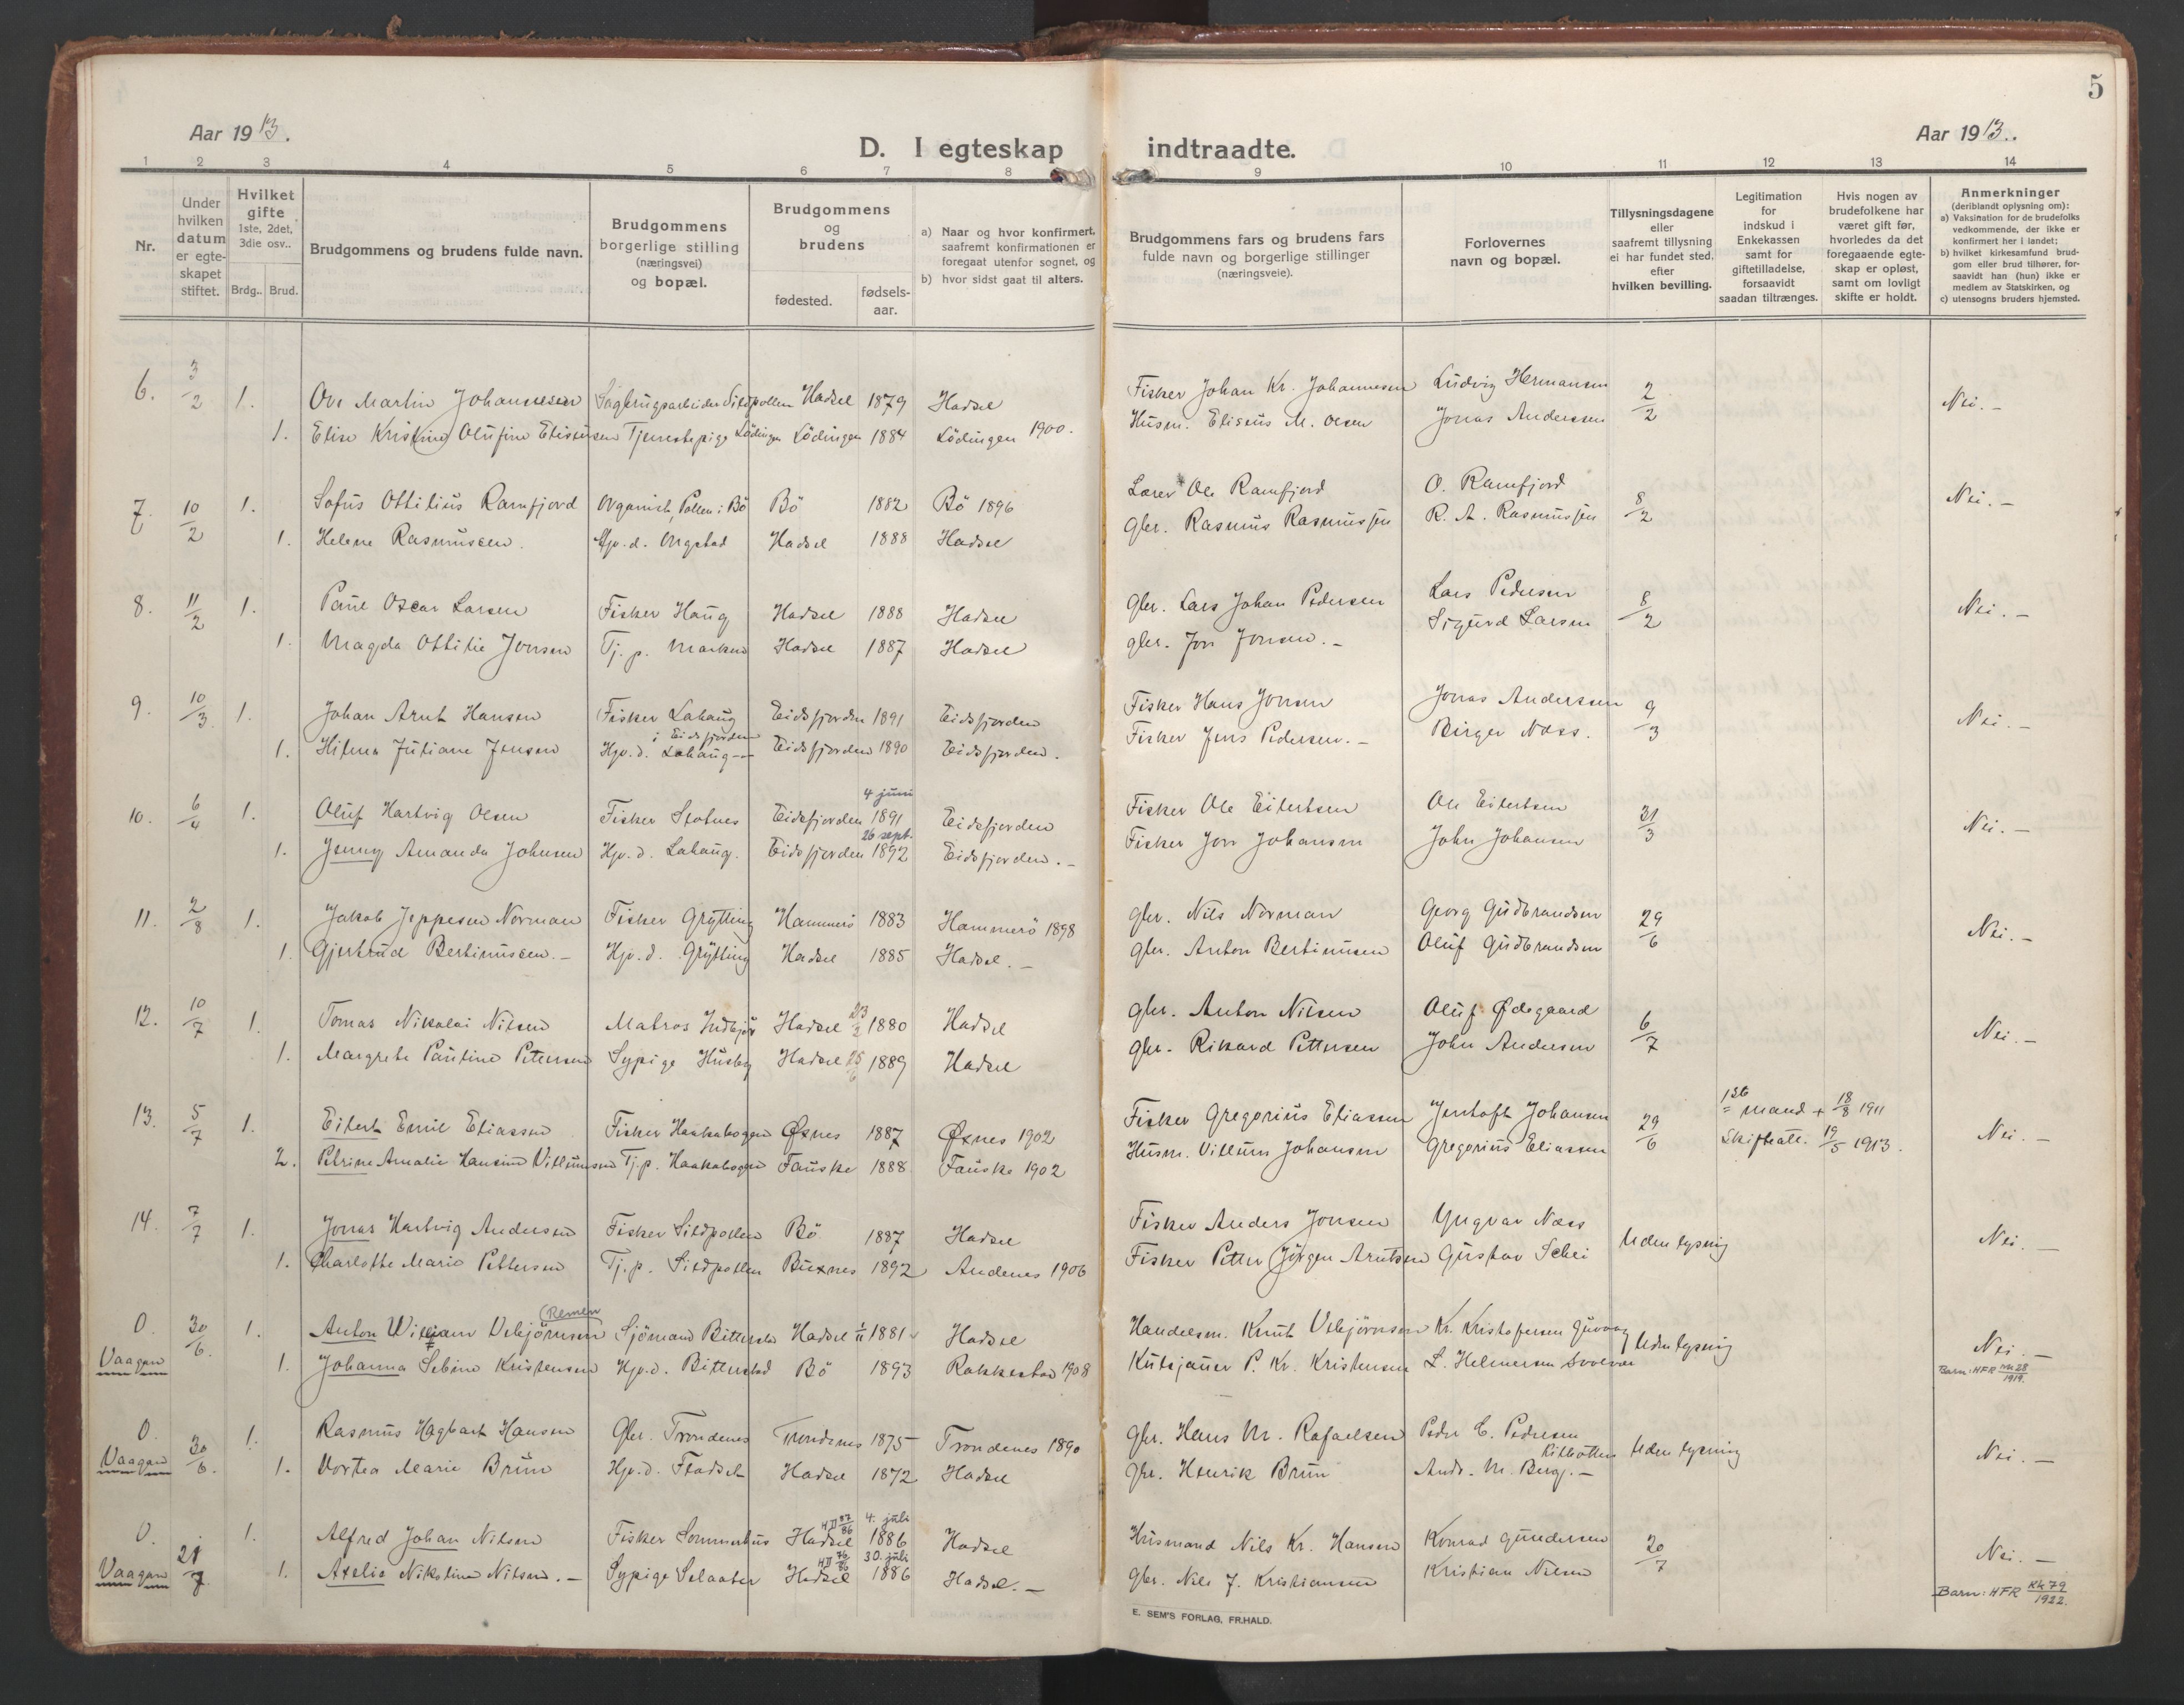 5
Aar 1913.
D. I egteskap indtraadte.
Aar 1913.
1 2 3 4 5 6 7 8 9 10 11 12 13 14
Nr.
Under hvilken datum er egte-skapet stiftet.
Hvilket gifte 1ste, 2det, 3die osv..
Brdg.. Brud.
Brudgommens og brudens fulde navn.
Brudgommens borgerlige stilling (næringsvei) og bopæl.
Brudgommens og brudens
fødested. fødsels-aar.
a) Naar og hvor konfirmert, saafremt konfirmationen er foregaat utenfor sognet, og
b) hvor sidst gaat til alters.
Brudgommens fars og brudens fars fulde navn og borgerlige stillinger (næringsveie).
Forlovernes navn og bopæl.
Tillysningsdagene eller saafremt tillysning ei har fundet sted, efter hvilken bevilling.
Legitimation for indskud i Enkekassen samt for giftetilladelse, forsaavidt saadan tiltrænges.
Hvis nogen av brudefolkene har været gift før, hvorledes da det foregaaende egte-skap er opløst, samt om lovligt skifte er holdt.
Anmerkninger (deriblandt oplysning om):
a) Vaksination for de brudefolks vedkommende, der ikke er konfirmert her i landet;
b) hvilket kirkesamfund brud-gom eller brud tilhører, for-saavidt han (hun) ikke er medlem av Statskirken, og
c) utensogns bruders hjemsted.
6. 3/2 1. Ove Martin Johannesen Sagbrugsarbeider Sildpollen Hadsel 1879 Hadsel Fisker Johan Kr. Johannesen Ludvig Hermansen 2/2 Nei.-
1. Elise Kristine Olufine Eliseusen Tjenestepige Lödingen Lödingen 1884 Lödingen 1900. Husm. Eliseus M. Olsen Jonas Andersen
7. 10/2 1. Sofus Ottilius Ramfjord Organist, Pollen i Bö Bö 1882 Bö 1896 Lærer Ole Ramfjord O. Ramfjord 8/2 Nei.-
1. Helene Rasmussen. Hjv.d. Ongstad Hadsel 1888 Hadsel gbr. Rasmus Rasmussen R. A. Rasmussen
8. 11/2 1. Paul Oscar Larsen Fisker Haug Hadsel 1888 Hadsel gbr. Lars Johan Pedersen Lars Pedersen 8/2 Nei.-
1. Magda Ottilie Jonsen Tj.p. Marken Hadsel 1887 Hadsel gbr. Jon Jonsen.- Sigurd Larsen
9. 10/3 1. Johan Arnt Hansen Fisker Lahaug i Eidsfjorden Eidsfjorden 1891 Eidsfjorden Fisker Hans Jonsen Jonas Andersen 9/3 Nei.-
1. Hilma Juliane Jensen Hjv.d. Lahaug -"- Eidsfjorden 1890 Eidsfjorden. Fisker Jens Pedersen.- Birger Næss.
10. 6/4 1. Oluf Hartvig Olsen Fisker Slotnes Eidsfjorden 4 juni 1891 Eidsfjorden Fisker Ole Eilertsen Ole Eilertsen 31/3 Nei.-
1. Jenny Amanda Johnsen Hjv.d. Lahaug. Eidsfjorden 26 sept. 1892 Eidsfjorden.- Fisker Jon Johansen John Johansen
11. 2/8 1. Jakob Jeppesen Norman Fisker Grytting Hammerö 1883 Hammerö 1898 gbr. Nils Norman Georg Gudbrandsen 29/6 Nei.-
1. Gjertrud Bertinussen.- Hjv.d. Grytting Hadsel 1885 Hadsel.- gbr. Anton Bertinusen Oluf Gudbrandsen
12. 10/7 1. Tomas Nikolai Nilsen Matros Hadsel 23/2 1880 Hadsel gbr. Anton Nilsen Oluf Ødegaard 6/7 Nei.-
1. Margrete Pauline Pettersen Sypige Husby Hadsel 25/6 1889 Hadsel gbr. Rikard Pettersen John Andersen
13. 5/7 1. Eilert Emil Eliassen Fisker Haakabogen Øxnes 1887 Øxnes 1902 Fisker Gregorius Eliassen Jentoft Johansen 29/6 1st mand + 18/8 1911 Nei.-
2. Petrine Amalie Hansine Villumsen Tj.p. Haakabogen Fauske 1888 Fauske 1902 Husm. Villum Johansen Gregorius Eliassen Skifteatt. 19/5 1913.
14. 7/7 1. Jonas Hartvig Andersen Fisker Sildpollen Bö 1887 Hadsel Fisker Anders Jonsen Yngvar Næss Uden lysning Nei.-
1. Charlotte Marie Pettersen Tj.p. Sildpollen Buxnes 1892 Andenes 1906 Fisker Petter Jörgen Arntsen Gustav Schei
0. Vaagan 30/6. 1. Anton William Vebjörnsen (Remen Sjömand Bitterstad Hadsel 1/11 1881 Hadsel Handelsm. Knut Vebjörnsen Kr. Kristofersen Guvaag Uden lysning Nei.-
1. Johanna Sebine Kristensen Hjv.d. Bitterstad Bö 1893 Rakkestad 1908 Kulsjauer P. Kr. Kristensen L. Helmersen Svolvær Barn: HFR nr 28/1919.
0. Vaagan 30/6. 1. Rasmus Hagbart Hansen Gbr. Trondenes Trondenes 1875 Trondenes 1890 gbr. Hans M. Rafaelsen Peder C. Pedersen Rilbotten Uden lysning Nei.-
1. Dortea Marie Brun Hjv.d. Fladset Hadsel 1872 Hadsel gbr. Henrik Brun Andr. M. Berg.-
0. Vaagan 21/7 1. Alfred Johan Nilsen Fisker Sommerhus Hadsel HD 87/86 4. juli 1886 Hadsel Husmand Nils Kr. Hansen Konrad Gundersen 20/7 Nei.-
1. Axelie Nikoline Nilsen.- Sypige Selaater Hadsel HD 76/86 30. juli 1886 Hadsel.- gbr. Nils J. Kristiansen Kristian Nilsen Barn: HFR Kk 79/1922.
E. SEM'S FORLAG, FR.HALD.